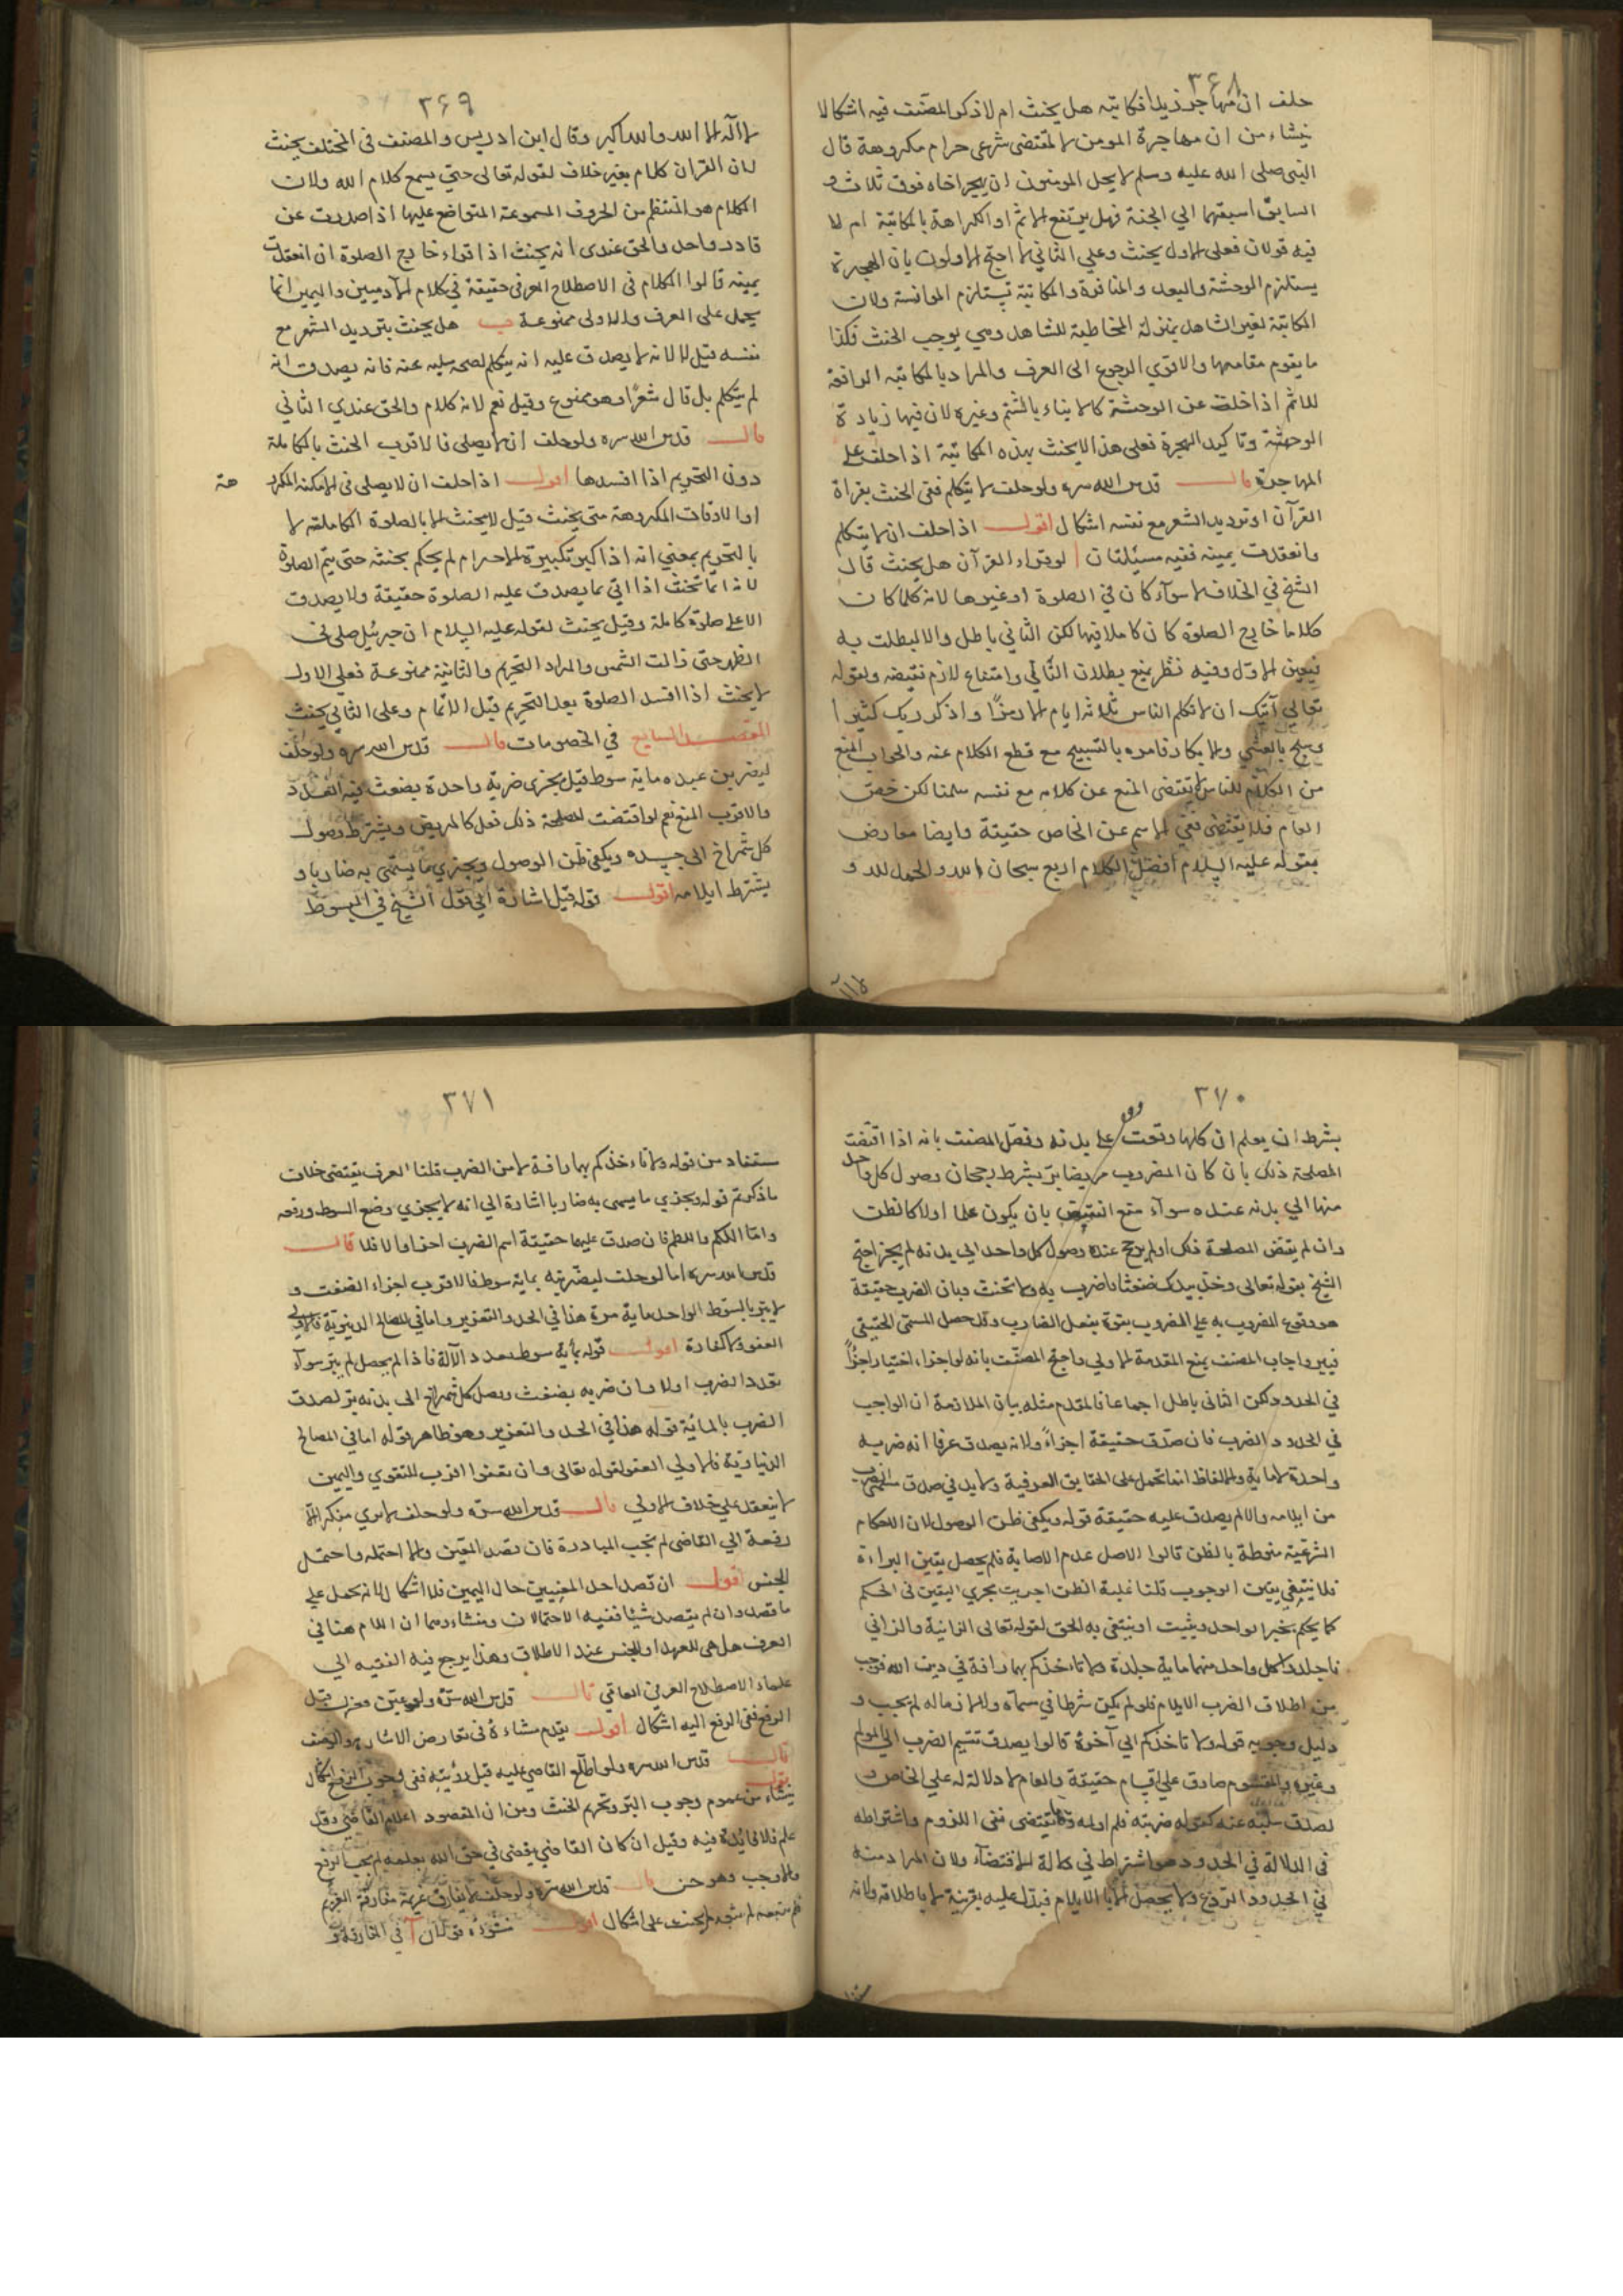 ٣٤٨
حلف ان مهاجر زيدا فكاتبه هل يحنث ام لا ذكر المصنف فيه اشكالا
ينشاء من ان مهاجرة المومن لا لمقتضى شرعى حرام مكروهة قال
النبى صلى الله عليه وسلم لا يحل المومنون ان يهجر اخاه فوق ثلاث و
السابق اسبقهما الي الجنة فهل يرتفع الاثم او الكراهة بالمكاتبة ام لا
فيه قولان فعلى الاول يحنث وعلى الثاني لا احتج الاولون بان الهجرة
يستلزم الوحشة والبعد والمنافرة والمكاتبة يستلزم الموانسة ولان
المكاتبة لغير الشاهد بمنزلة المخاطبة للشاهد وهى يوجب الحنث فكذا
ما يقوم مقامها والاقوي الرجوع الى العرف والمراد بالمكاتبه الرافعة
للاثم اذا خلت عن الوحشة كالايذاء بالشتم وغيره لان فيها زيادة
الوحشة وتاكيد الهجرة فعلى هذا لا يحنث بهذه المكاتبة اذا حلف على
المهاجرة قال قدس الله سره ولو حلف لا يتكلم ففى الحنث بقراة
القرآن او ترديد الشعر مع نفسه اشكال اقول اذا حلف ان لا يتكلم
وانعقدت يمينه ففيه مسئلتان ا لو قراء القرآن هل يحنث قال
الشيخ في الخلاف لا سواء كان في الصلوة او غيرها لانه كلما كان
كلاما خارج الصلوة كان كاملا فيها لكن الثاني باطل والا لبطلت به
فيعين الاول وفيه نظر بمنع بطلان الثاني وامتناع لازم نقيضه ولقوله
تعالى آيتك ان لا تكلم الناس ثلاثة ايام الا رمزا واذكر ربك كثيرا
وسبح بالعشي والابكار فامره بالتسبيح مع قطع الكلام عنه والجواب المنع
من الكلام للناس لا يقتضى المنع عن كلامه مع نفسه سلمنا لكن خص
العام فلا يقتضى نفى الاسم عن الخاص حقيقة وايضا معارض
بقوله عليه السلام افضل الكلام اربع سبحان الله والحمد لله و
لا اله
٣٤٩
لا اله الا الله والله اكبر وقال ابن ادريس والمصنف فى المختلف يحنث
لان القران كلام بغير خلاف لقوله تعالى حتي يسمع كلام الله ولان
الكلام هو المنتظم من الحروف المسموعة المتواضع عليها اذا صدرت عن
قادر واحد والحق عندى انه يحنث اذا قراء خارج الصلوة ان انعقدت
يمينه قالوا الكلام فى الاصطلاح العرفى حقيقة في كلام الآدميين واليمين انما
يحمل على العرف والاولى ممنوعة ب هل يحنث بترديد الشعر مع
نفسه قيل لا لانه لا يصدق عليه انه يتكلم لصحه سلبه عنه فانه يصدق انه
لم يتكلم بل قال شعرًا وهو ممنوع وقيل نعم لانه كلام والحق عندي الثاني
قال قدس الله سره ولو حلف ان لا يصلى فالاقرب الحنث بالكاملة
دون التحريم اذا افسدها اقول اذا حلف ان لا يصلى فى الامكنة المكروهة
او الاوقات المكروهة متى يحنث قيل لا يحنث الا بالصلوة الكاملة لا
بالتحريم بمعني انه اذا كبر تكبيرة الاحرام لم يحكم بحنثه حتى يتم الصلوة
لانه انما تحنث اذا اتي بما يصدق عليه الصلوة حقيقة ولا يصدق
الا على صلوة كاملة وقيل يحنث لقوله عليه السلام ان جبرئيل صلى نى
الظهر حتى زالت الشمس والمراد التحريم والثانية ممنوعة فعلى الاول
لا يحنث اذا افسد الصلوة بعد التحريم قبل الاتمام وعلى الثاني يحنث
المقصد السابع في الخصومات قال قدس الله سره ولو حلف
ليضربن عبده ماية سوط قيل يجزى ضربة واحدة بضغث فيه العدد
والاقرب المنع نعم لو اقتضت المصلحة ذلك فعل كالمريض ويشترط وصول
كل شمراخ الى جسده ويكفى ظن الوصول ويجزي ما يسمى به ضاربا و
يشترط ايلامه اقول قوله قيل اشارة الي قول الشيخ في المبسوط
٣٧٠
بشرط ان يعلم ان كلها وقعت على بدنه وفصّل المصنف بانه اذا اقتضت
المصلحة ذلك بان كان المضروب مريضا برّ بشرط رجحان وصول كل واحد
منها الي بدنه عنده سواء منع النقيض بان يكون علما اولا كالظن
وان لم يقتض المصلحة ذلك او لم يرجح عنده وصول كل واحد الى بدنه لم يجز احتج
الشيخ بقوله تعالى وخذ بيدك ضغثا فاضرب به ولا تحنث وبان الضرب حقيقة
هو وقوع المضروب به على المضروب بقوة بفعل الضارب وقد حصل المسمى الحقيقى
فيبر واجاب المصنف بمنع المقدمة الاولي واحتج المصنف بانه لو اجزاء اختيارا جزأ
في الحدود لكن الثانى باطل اجماعا فالمقدم مثله بيان الملازمة ان الواجب
في الحدود الضرب فان صدق حقيقة اجزأ ولانه يصدق عرفا انه ضربه
واحدة لا ماية والالفاظ انما تحمل على الحقايق العرفية ولابد في صدق مسمى الضرب
من ايلامه والا لم يصدق عليه حقيقة قوله ويكفى ظن الوصول لان الاحكام
الشرعية منوطة بالظن قالوا الاصل عدم الاصابة فلم يحصل يقين البراءة
فلا ينتفى يقين الوجوب قلنا غلبة الظن اجريت مجري اليقين فى الحكم
كما يحكم بخبر الواحد ويثبت او ينتفى به الحق لقوله تعالى الزانية والزاني
فاجلدوا كل واحد منهما ماية جلدة ولا تاخذكم بهما رافة في دين الله فوجب
من اطلاق الضرب الايلام فلو لم يكن شرطا في مسماه والا زماله لم يجب و
دليل وجوبه قوله ولا تاخذكم الي آخره قالوا يصدق تقسيم الضرب الى المولم
وغيره والمقسوم صادق على اقسام حقيقة والعام لا دلالة له على الخاص و
لصدق سلبه عنه كقوله ضربته فلم اولمه وهما يقتضى نفى اللزوم واشتراطه
فى الدلالة في الحدود هو اشتراط في دلالة الاقتضاء ولان المراد منه
في الحدود الردع ولا يحصل الا بالايلام فيدل عليه بقرينة لا باطلاقه ولانه
٣٧١
مستفاد من قوله ولا تاخذكم بهما رافة لا من الضرب قلنا العرف يقتضى خلاف
ما ذكرتم قوله ويجزي ما يسمى به ضاربا اشارة الي انه لا يجزي وضع السوط ورفعه
واما اللكم واللطم فان صدق عليهما حقيقة اسم الضرب اجزأ والا فلا قال
قدس الله سره اما لو حلف ليضربنه بماية سوط فالاقرب اجزاء الضغث و
لا يبر بالسوط الواحد ماية مرة هذا في الحد والتعزير واما في المصالح الدنيوية فالاولي
العفو ولا كفارة اقول قوله بمأية سوط بعدد الآلة فاذا لم يحصل لم يبر سواء
تعدد الضرب اولا وان ضربه بضغث وصل كل شمراخ الى بدنه بر لصدق
الضرب بالمائية قوله هذا في الحد والتعزير وهو ظاهر قوله اما في المصالح
الدنياوية فالاولي العفو لقوله تعالى وان تعفوا اقرب للتقوي واليمين
لا ينعقد علي خلاف الاولي قال قدس الله سره ولو حلف لا يري منكرا الا
رفعه الي القاضى لم تجب المبادرة فان قصد المعين والا احتمله واحتمل
الجنس اقول ان قصد احد المعنيين حال اليمين فلا اشكال لانه يحمل على
ما قصد وان لم يقصد شيئا ففيه الاحتمالان ومنشاءوهما ان اللام هنا في
العرف هل هى للعهد او للجنس عند الاطلاق وهذا يرجع فيه الفقيه الي
علماء الاصطلاح العرفى العاقى قال قدس الله سره ولو عين وعزل قبل
الرفع ففى الرفع اليه اشكال اقول يقدم منشاءه فى تعارض الاشارة والوصف
قال قدس الله سره ولو اطلع القاضي عليه قبل رؤيته ففى وجوب الرفع اشكال
اقول ينشاء من عموم وجوب البر وتحريم الحنث ومن ان المقصود اعلام القاضي وقد
علم فلا فائدة فيه وقيل ان كان القاضي يقضي في حق الله بعلمه لم يجب الرفع
والا وجب وهو حسن قال قدس الله سره ولو حلف لا يفارق غريمه ففارقه الغريم
فلم يتبعه لم يحنث على اشكال اقول منشؤه قولان آ في المفارقة و